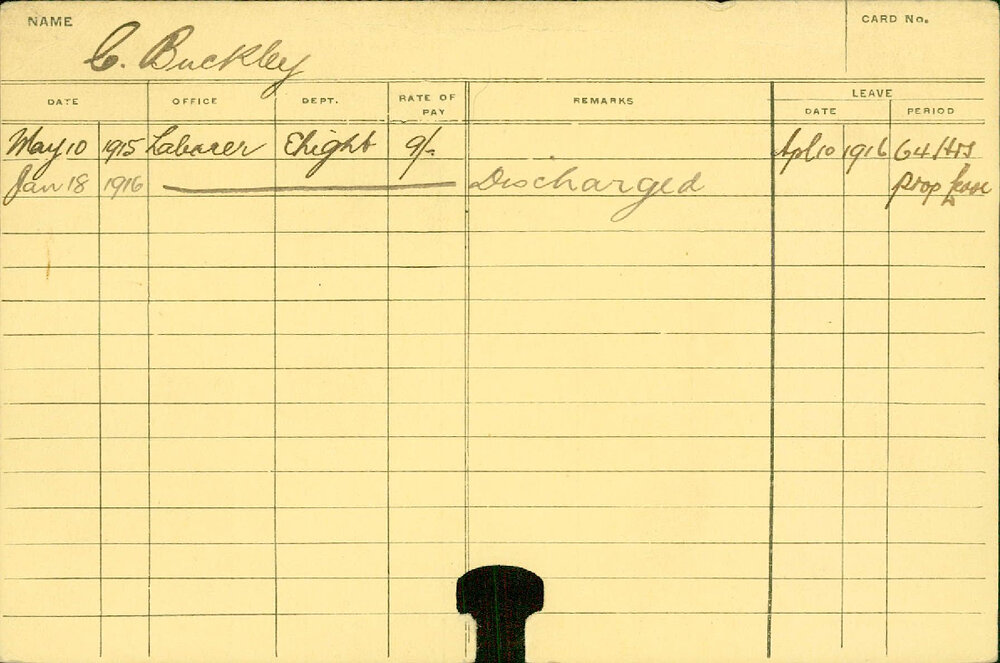 NAME C. Buckley CARD No.
DATE OFFICE DEPT. RATE OF PAY REMARKS LEAVE
DATE PERIOD
May 10 1915 Laborer Elight 9/- Apl 10 1916 64 Hrs
Jan 18 1916 Discharged prop leave